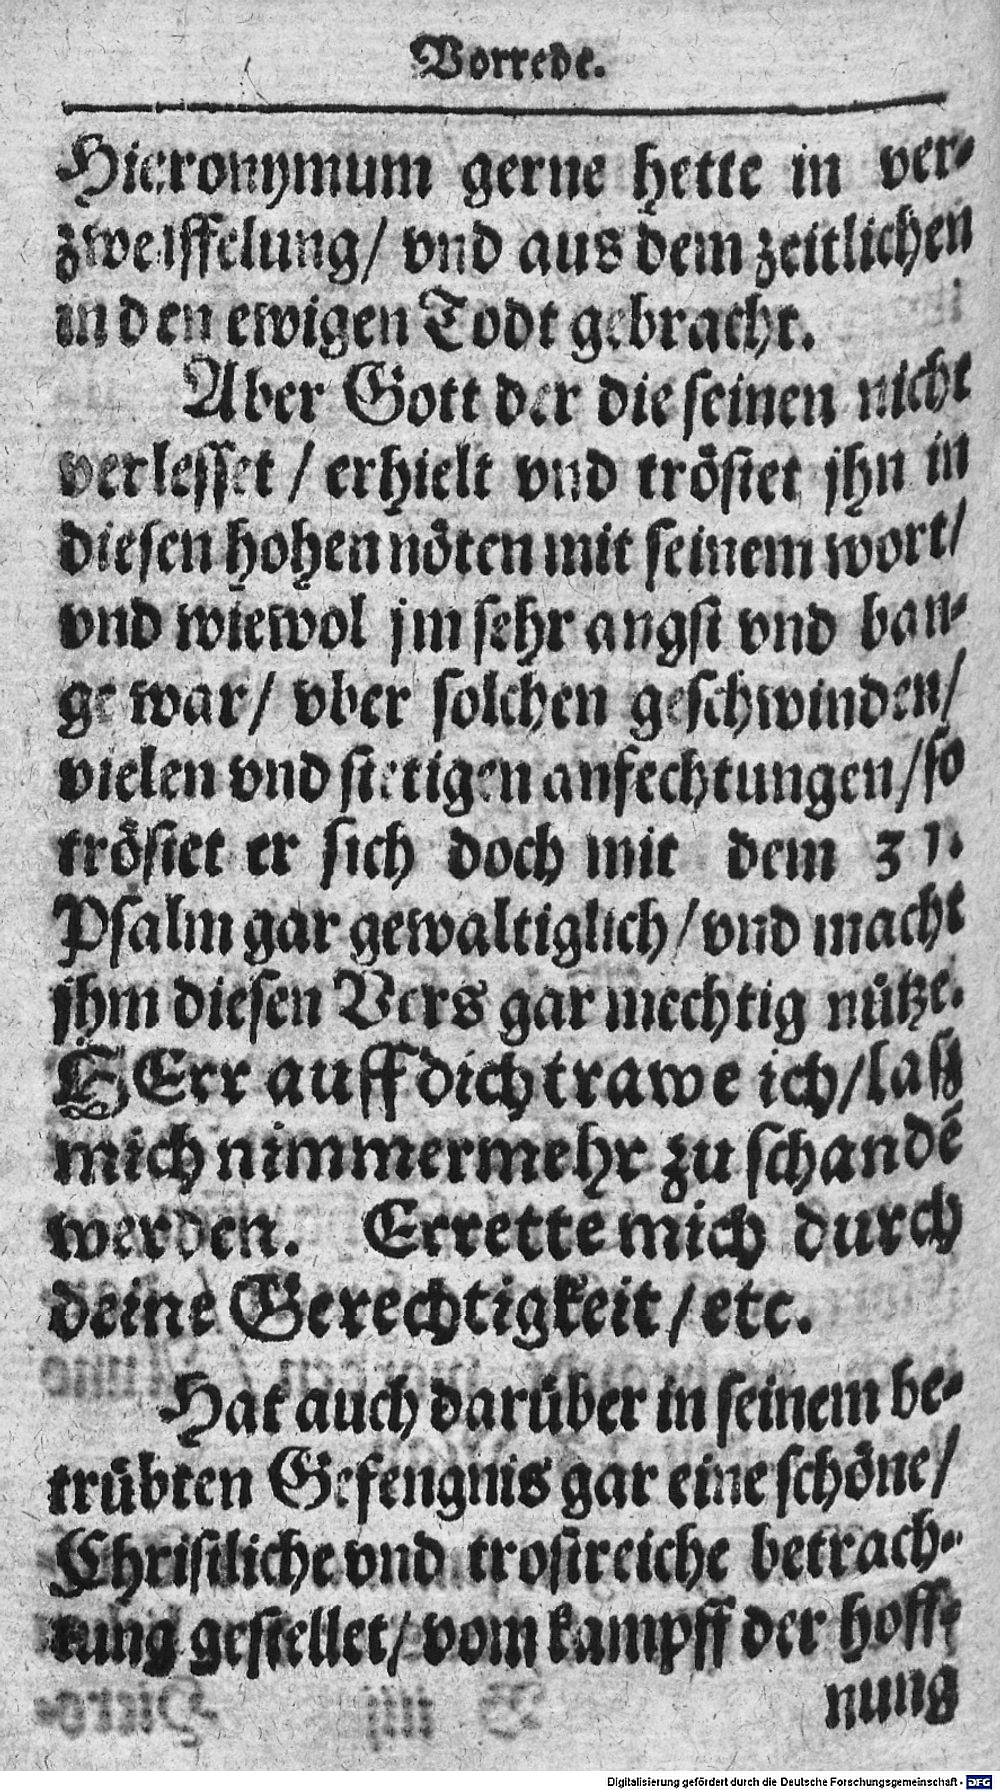 Vorrede.
Hieronymum gerne hette in ver-
zweiffelung/ vnd aus dem zeitlichen
in den ewigen Todt gebracht.
Aber Gott der die seinen nicht
verlesset / erhielt vnd tröstet jhn in
diesen hohen nöten mit seinem wort/
vnd wiewol jm sehr angst vnd ban-
ge war/ vber solchen geschwinden/
vielen vnd stetigen anfechtungen/ so
tröstet er sich doch mit dem 31.
Psalm gar gewaltiglich/ vnd macht
jhm diesen Vers gar mechtig nütze.
HErr auff dich trawe ich/ laß
mich nimmermehr zu schandē
werden. Errette mich durch
deine Gerechtigkeit/ etc.
Hat auch darüber in seinem be-
trübten Gefengnis gar eine schöne/
Christliche vnd trostreiche betrach-
tung gestellet/ vom kampff der hoff-
nung
Digitalisierung gefördert durch die Deutsche Forschungsgemeinschaft - DFG